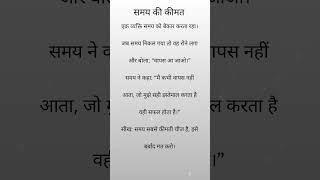 समय की कीमत
एक व्यक्ति समय को बेकार करता रहा।
जब समय निकल गया तो वह रोने लगा
और बोला: "वापस आ जाओ।"
समय ने कहा: "मैं कभी वापस नहीं
आता, जो मुझे सही इस्तेमाल करता है
वही सफल होता है।"
सीख: समय सबसे कीमती चीज़ है, इसे
बर्बाद मत करो।